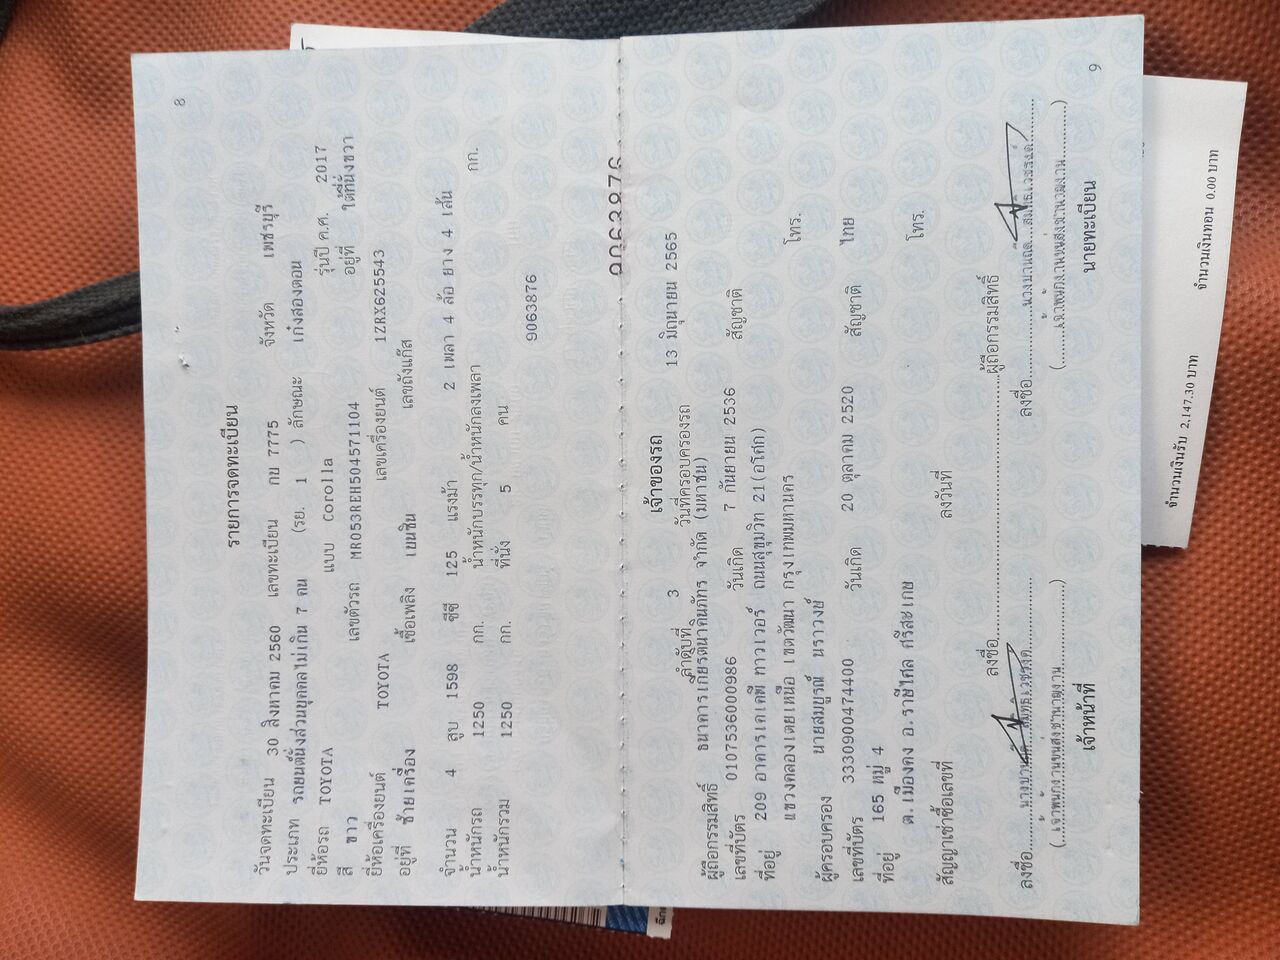 8
รายการจดทะเบียน
วันจดทะเบียน 30 สิงหาคม 2560 เลขทะเบียน กบ 7775 จังหวัด เพชรบุรี
ประเภท รถยนต์นั่งส่วนบุคคลไม่เกิน 7 คน (รย. 1 ) ลักษณะ เก๋งสองตอน
ยี่ห้อรถ TOYOTA แบบ Corolla รุ่นปี ค.ศ. 2017
สี ขาว เลขตัวรถ MR053REH504571104 อยู่ที่ ใต้ที่นั่งขวา
ยี่ห้อเครื่องยนต์ TOYOTA เลขเครื่องยนต์ 1ZRX625543
อยู่ที่ ซ้ายเครื่อง เชื้อเพลิง เบนซิน เลขถังแก๊ส
จำนวน 4 สูบ 1598 ซีซี 125 แรงม้า 2 เพลา 4 ล้อ ยาง 4 เส้น
น้ำหนักรถ 1250 กก. น้ำหนักบรรทุก/น้ำหนักลงเพลา กก.
น้ำหนักรวม 1250 กก. ที่นั่ง 5 คน
9063876
9063876
เจ้าของรถ
ลำดับที่ 3 วันที่ครอบครองรถ 13 มิถุนายน 2565
ผู้ถือกรรมสิทธิ์ ธนาคารเกียรตินาคินภัทร จำกัด (มหาชน)
เลขที่บัตร 0107536000986 วันเกิด 7 กันยายน 2536 สัญชาติ
ที่อยู่ 209 อาคารเคเคพี ทาวเวอร์ ถนนสุขุมวิท 21(อโศก)
แขวงคลองเตยเหนือ เขตวัฒนา กรุงเทพมหานคร โทร.
ผู้ครอบครอง นายสมบูรณ์ นราวงษ์
เลขที่บัตร 3330900474400 วันเกิด 20 ตุลาคม 2520 สัญชาติ ไทย
ที่อยู่ 165 หมู่ 4
ต.เมืองคง อ.ราษีไศล ศรีสะเกษ โทร.
สัญญาเช่าซื้อเลขที่ ลงวันที่
ลงชื่อ ผู้ถือกรรมสิทธิ์
ลงชื่อ ลงชื่อ
(เจ้าพนักงานขนส่งชำนาญงาน) (เจ้าพนักงานขนส่งชำนาญงาน)
เจ้าหน้าที่ นายทะเบียน
9
จำนวนเงินรับ 2,147.30 บาท จำนวนเงินทอน 0.00 บาท